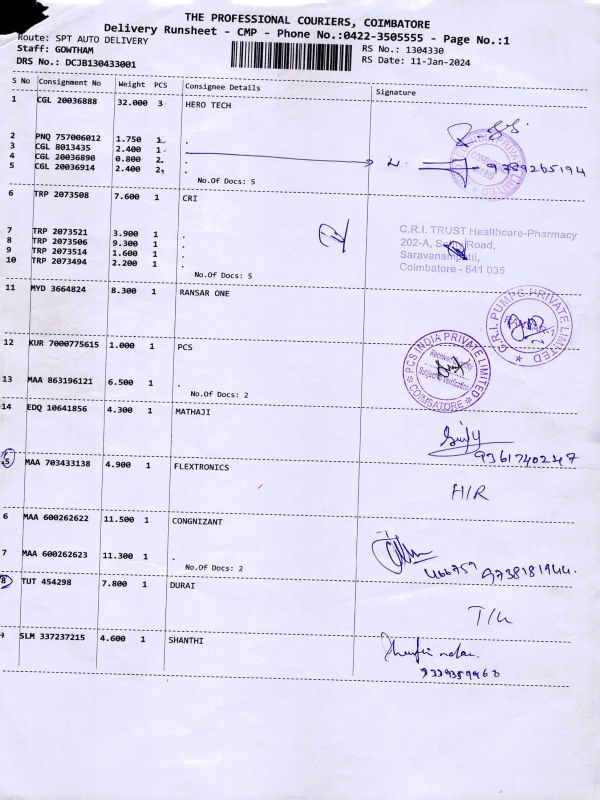 THE PROFESSIONAL COURIERS, COIMBATORE
Delivery Runsheet - CMP - Phone No.:0422-3505555 - Page No.:1
Route: SPT AUTO DELIVERY
Staff: GOWTHAM
RS No.: 1304330
DRS No.: DCJB130433001
RS Date: 11-Jan-2024
S No Consignment No Weight PCS Consignee Details Signature
1 CGL 20036888 32.000 3 HERO TECH
2 PNQ 757006012 1.750 1 .
3 CGL 8013435 2.400 1 .
4 CGL 20036890 0.800 2 .
5 CGL 20036914 2.400 2 .
9789265194
No.Of Docs: 5
6 TRP 2073508 7.600 1 CRI
7 TRP 2073521 3.900 1 .
8 TRP 2073506 9.300 1 .
9 TRP 2073514 1.600 1 .
10 TRP 2073494 2.200 1 .
No.Of Docs: 5
C.R.I. TRUST Healthcare-Pharmacy
202-A, Road,
Saravanampatti,
Coimbatore - 641 035
11 MYD 3664824 8.300 1 RANSAR ONE
C.R.I. PUMPS PRIVATE LIMITED
12 KUR 7000775615 1.000 1 PCS
PCS INDIA PRIVATE LIMITED
COIMBATORE
13 MAA 863196121 6.500 1 .
No.Of Docs: 2
14 EDQ 10641856 4.300 1 MATHAJI
9361740247
5 MAA 703433138 4.900 1 FLEXTRONICS
H/R
6 MAA 600262622 11.500 1 CONGNIZANT
7 MAA 600262623 11.300 1 .
No.Of Docs: 2
466757 9738181944.
8 TUT 454298 7.800 1 DURAI
T/L
9 SLM 337237215 4.600 1 SHANTHI
9339359968